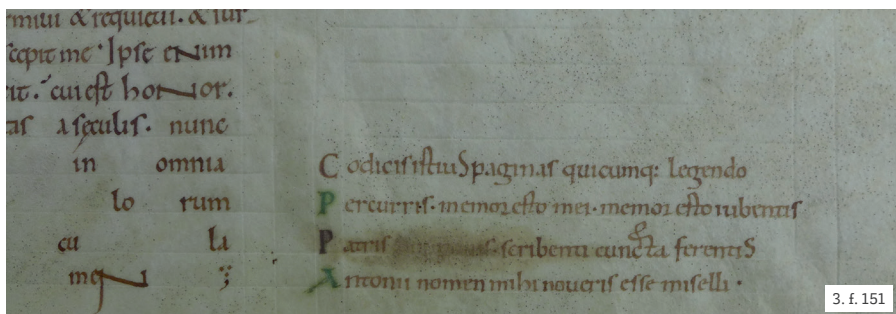 rmiui & requieui. & sur-
scepit me. Ipse enim
rit. cui est honor.
tas a seculis. nunc
in omnia
lo rum
cu la
men
Codicis istius paginas quicumq: legendo
Percurris. memor esto mei. memor esto iubentis
Patris scribenti cuncta ferentis
Antonii nomen mihi noueris esse miselli.
3. f. 151